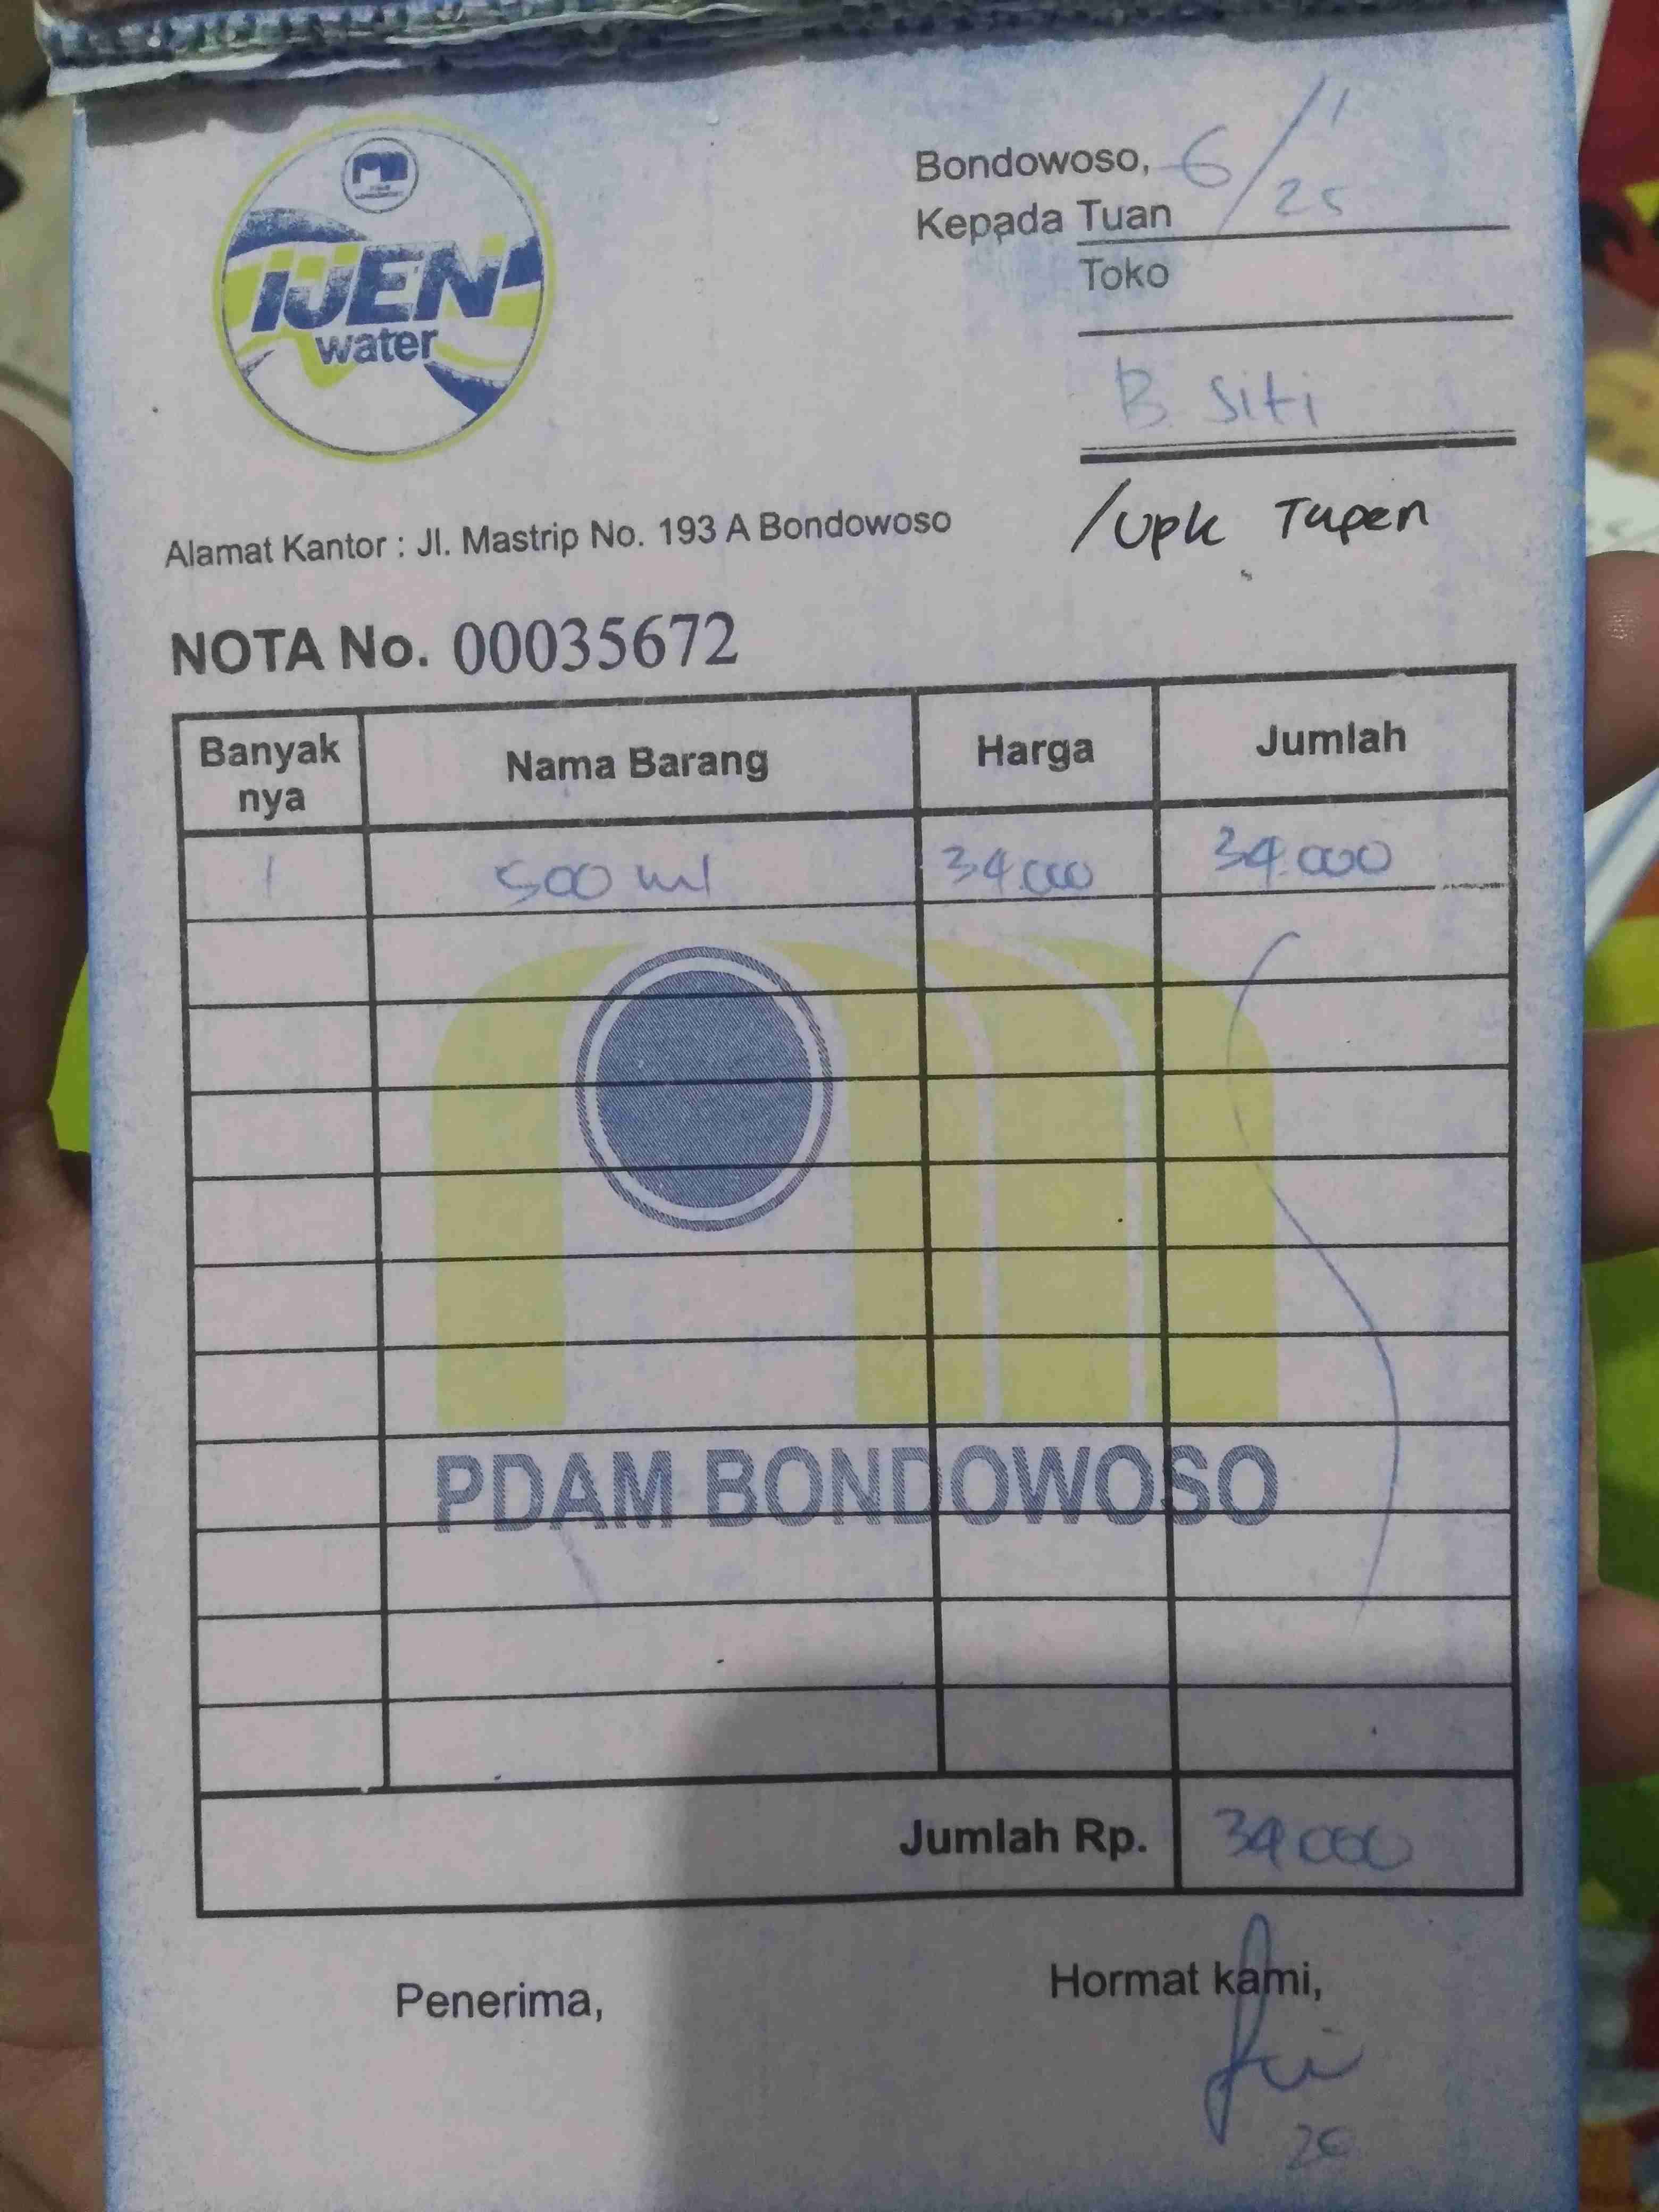 IJEN
water
Bondowoso, 6/1/25
Kepada Tuan
Toko
B Siti
/Upk Tapen
Alamat Kantor : Jl. Mastrip No. 193 A Bondowoso
NOTA No. 00035672
Banyak nya Nama Barang Harga Jumlah
1 500 ml 34.000 34.000
PDAM BONDOWOSO
Jumlah Rp. 34.000
Penerima, Hormat kami,